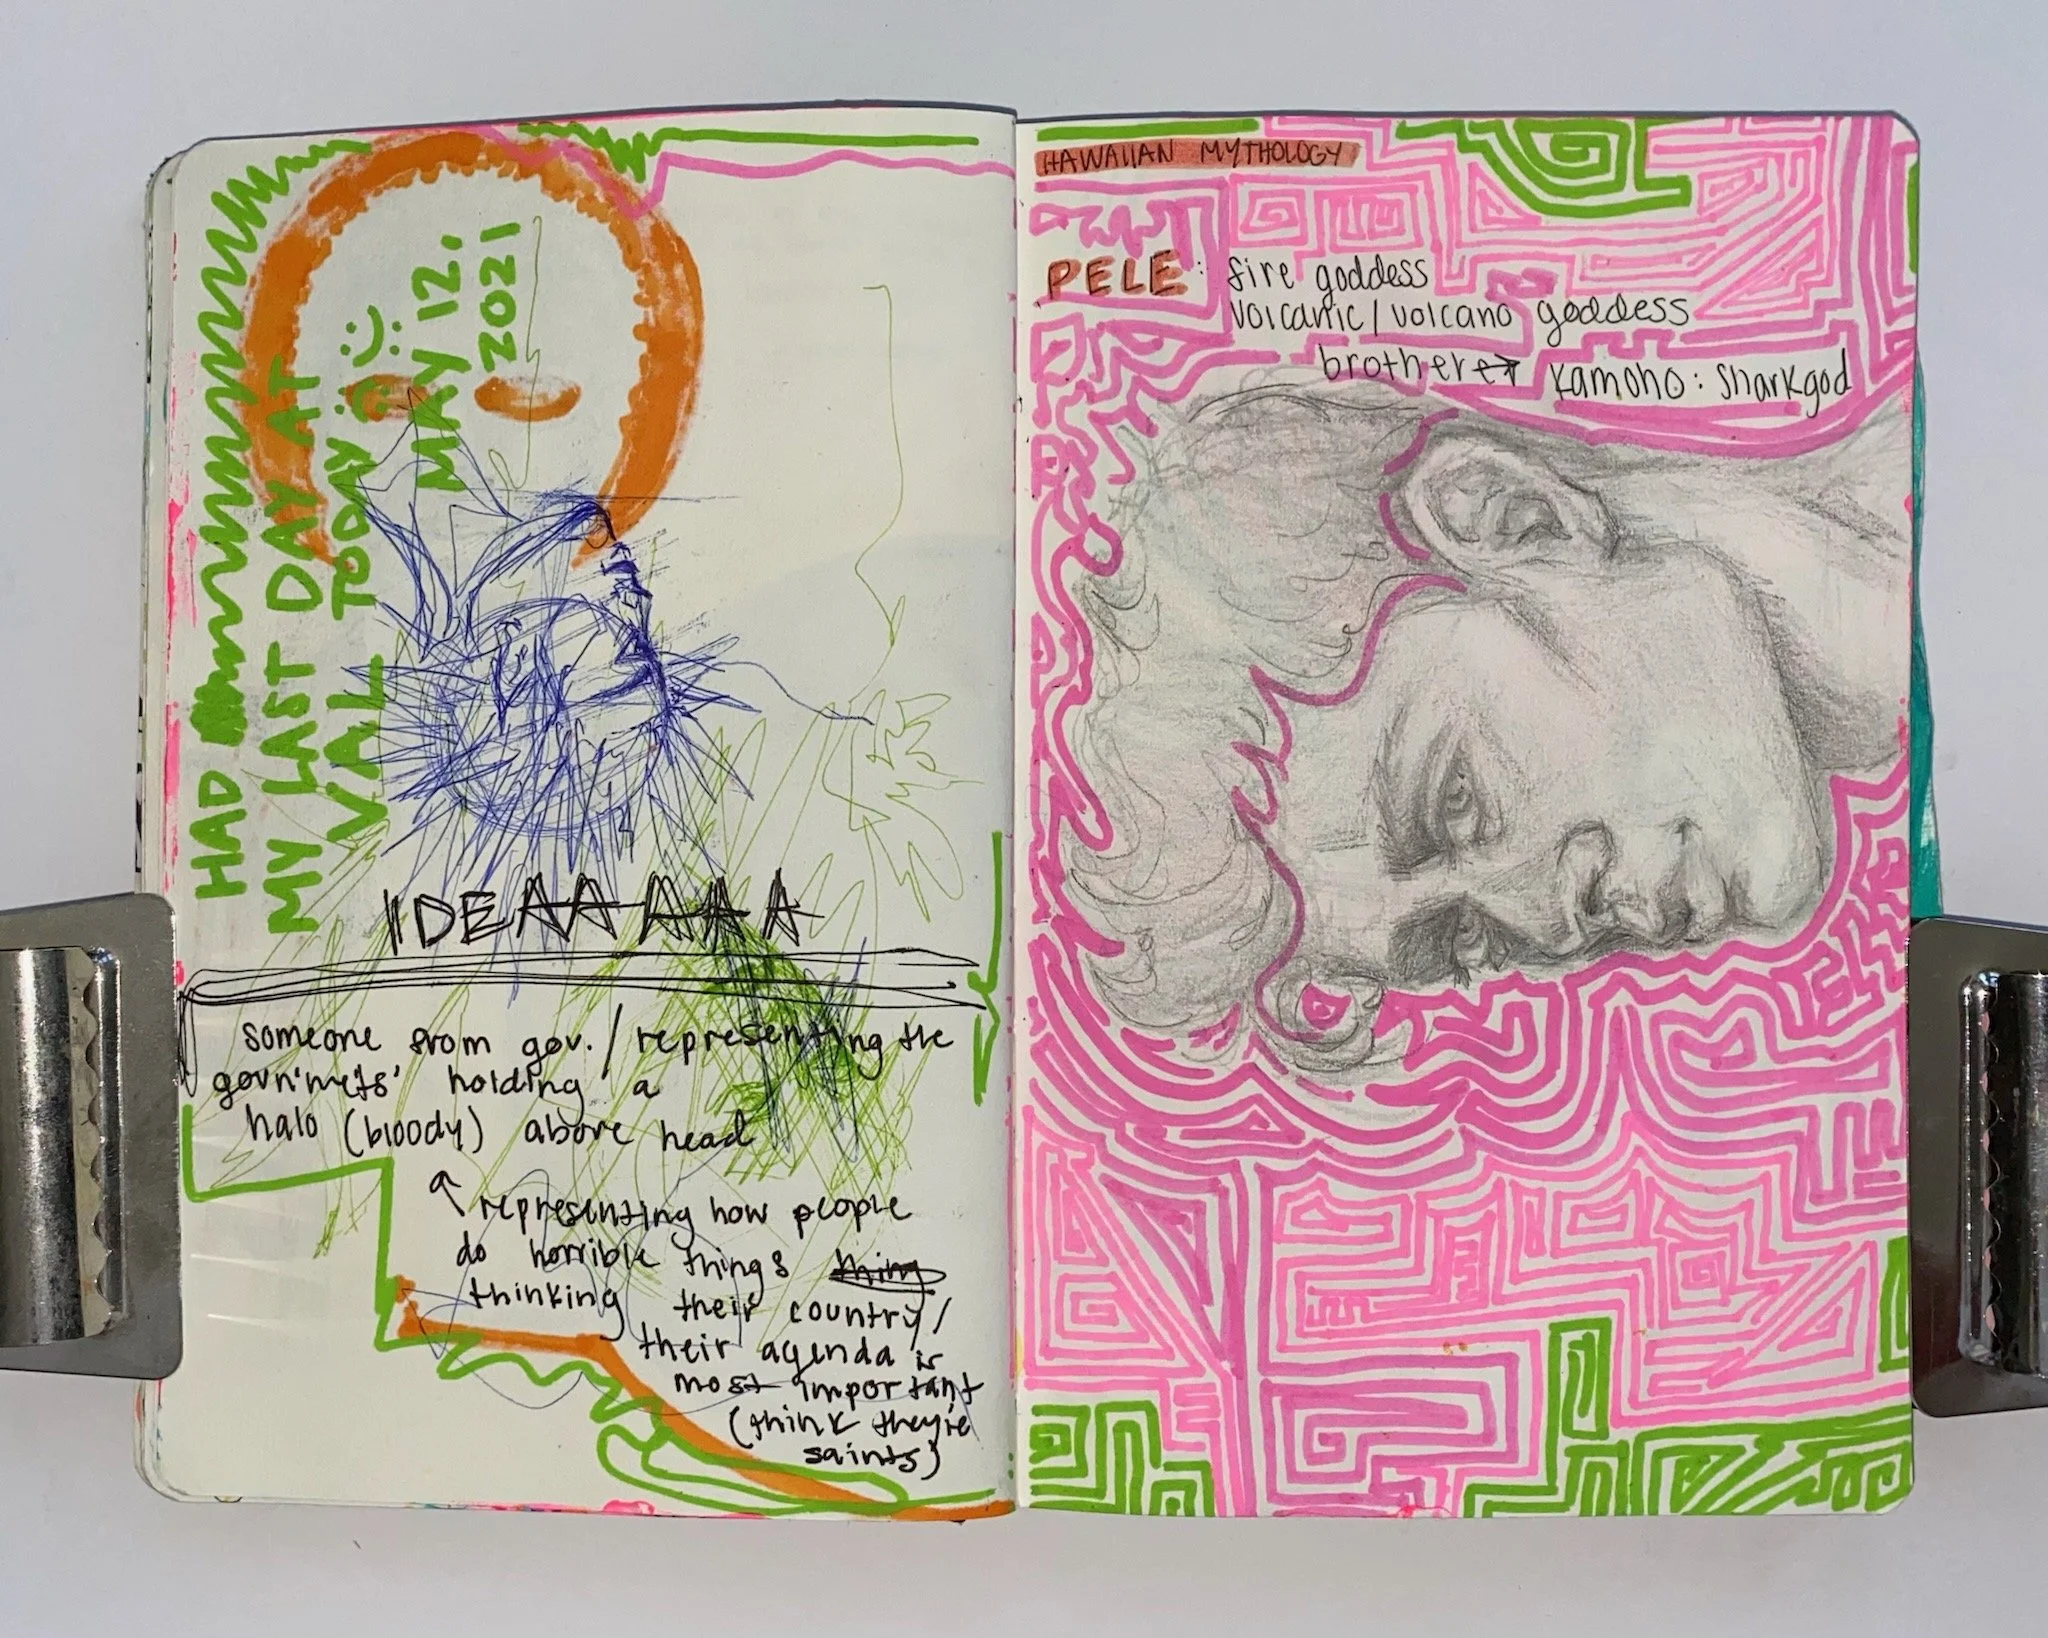 HAD
MY LAST DAY AT
VAL TODAY :)
MAY 12.
2021
IDEAAAAAA
someone from gov./representing the
holding a
halo (bloody) above head
representing how people
do horrible things thing
thinking their country/
their agenda is
most important
(think they're
saints)
HAWAIIAN MYTHOLOGY
PELE: fire goddess
volcanic/volcano goddess
brother → Kamoho: Sharkgod